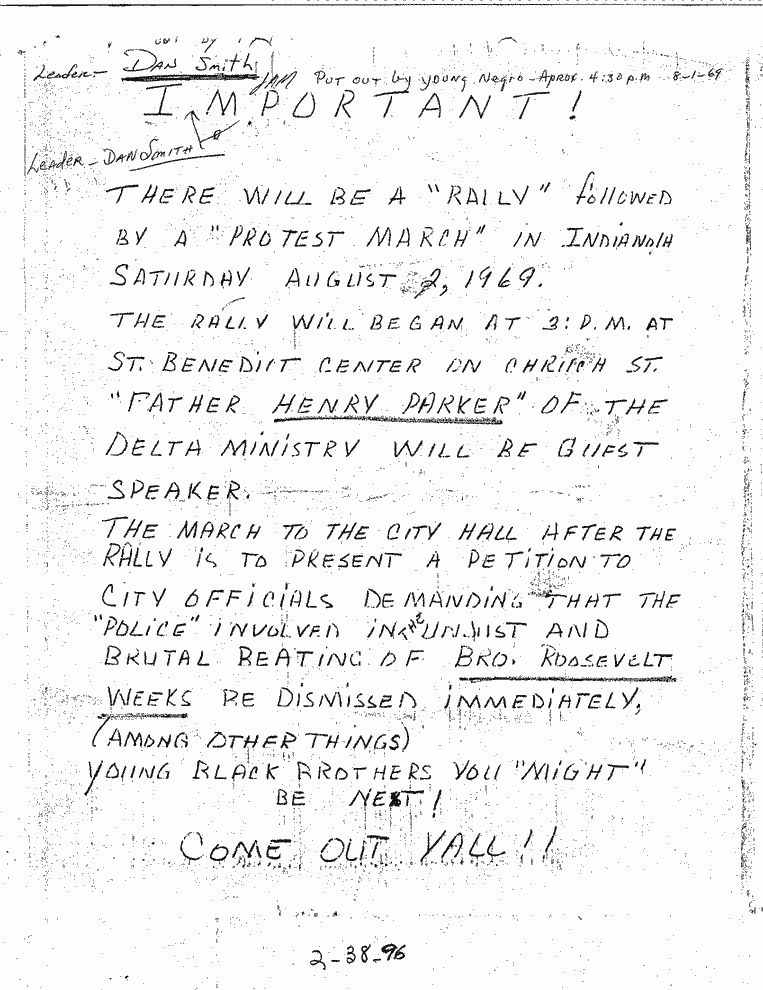 Leader - Dan Smith
Put out by young Negro - Aprox. 4:30 p.m 8-1-69
IMPORTANT!
Leader - Dan Smith
THERE WILL BE A "RALLY" followED
BY A "PROTEST MARCH" IN INDIANOLA
SATURDAY AUGUST 2, 1969.
THE RALLY WILL BEGAN AT 3: P.M. AT
ST. BENEDICT CENTER ON CHURCH ST.
"FATHER HENRY PARKER" OF THE
DELTA MINISTRY WILL BE GUEST
SPEAKER.
THE MARCH TO THE CITY HALL AFTER THE
RALLY IS TO PRESENT A PETITION TO
CITY OFFICIALS DEMANDING THAT THE
"POLICE" INVOLVED IN THE UNJUST AND
BRUTAL BEATING OF BRO. ROOSEVELT
WEEKS BE DISMISSED IMMEDIATELY,
(AMONG OTHER THINGS)
YOUNG BLACK BROTHERS YOU "MIGHT"
BE NEXT!
COME OUT YALL!!
2-38-96